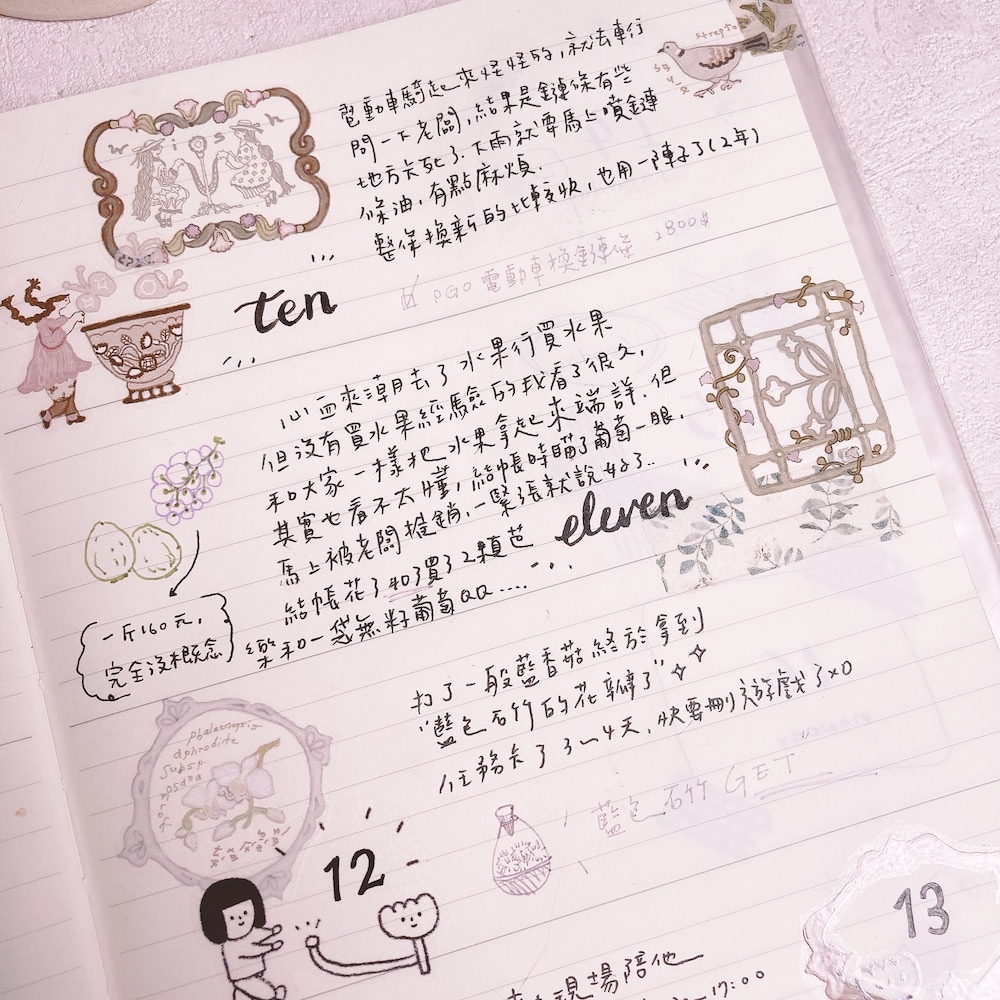 電動車騎起來怪怪的,就去車行
問一下老闆,結果是鏈條有些
地方卡死了.下雨就要馬上噴鏈
條油,有點麻煩.
整條換新的比較快,也用一陣子了(2年)
wish
strepto
ten
PGO 電動車換鏈條 2800$
心血來潮去了水果行買水果
但沒有買水果經驗的我看了很久,
和大家一樣把水果拿起來端詳.但
其實也看不太懂,結帳時瞄了葡萄一眼.
馬上被老闆推銷,一緊張就說好了..
結帳花了403買了2顆芭
樂和一袋無籽葡萄QQ....
eleven
一斤160元,
完全沒概念
打了一般藍香菇終於拿到
"藍色石竹的花瓣了"
任務卡了3~4天,快要刪遊戲了xD
藍色石竹 GET
phalaenopsis
aphrodite
subsp.
formosana
12
13
現場陪他
17:00